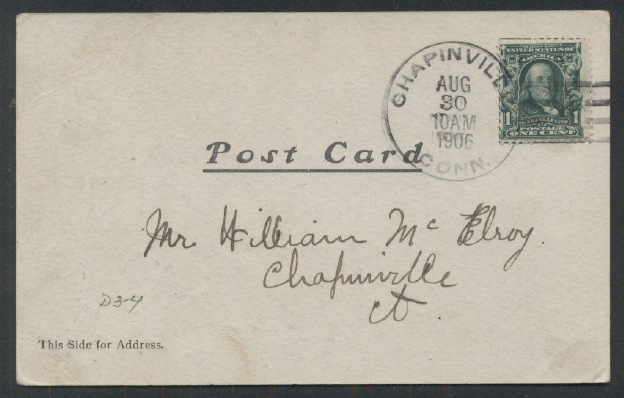 CHAPINVILL
AUG
30
10AM
1906
CONN.
UNITED STATES OF
AMERICA
1 1
POSTAGE
ONE CENT
Post Card
Mr. William Mc Elroy.
Chapinville
Ct.
D3-4
This Side for Address.